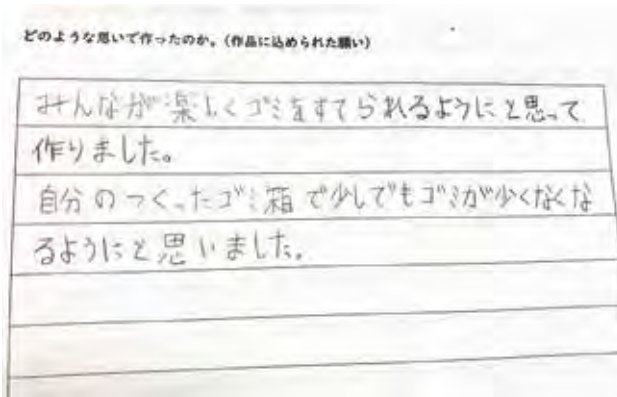 どのような思いで作ったのか。(作品に込められた願い)
みんなが楽しくゴミをすてられるようにと思って
作りました。
自分のつくったゴミ箱で少しでもゴミが少なくな
るようにと思いました。